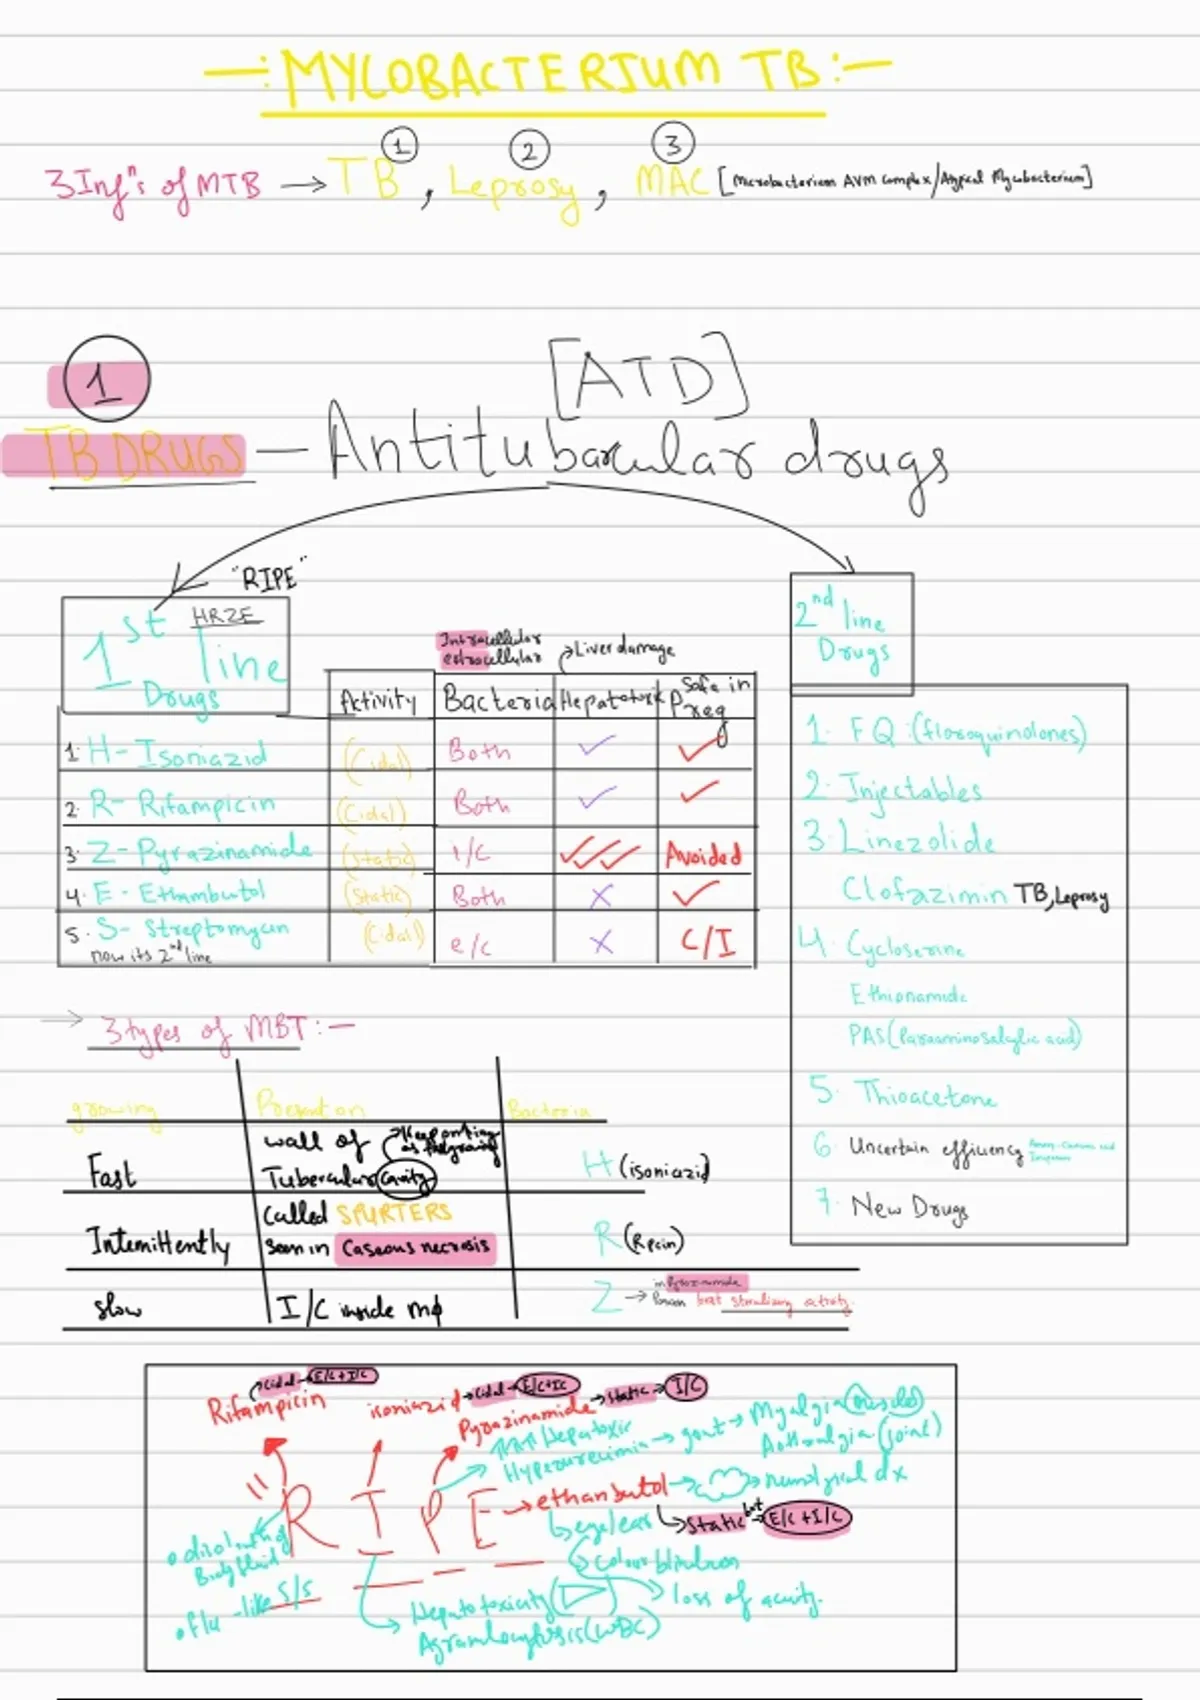 -: MYCOBACTERIUM TB :-
① ② ③
3 Infⁿs of MTB → TB, Leprosy, MAC [Microbacterium AVM Complex/Atypical Mycobacterium]
1
[ATD]
TB DRUGS - Antitubarcular drugs
"RIPE"
1st line Drugs HRZE
2nd line Drugs
Intracellular extracellular
Liver damage
Activity Bacteria Hepatotoxic Safe in Preg
1. H- Isoniazid (Cidal) Both ✓ ✓
2. R- Rifampicin (Cidal) Both ✓ ✓
3. Z- Pyrazinamide (Static) I/C ✓✓✓ Avoided
4. E- Ethambutol (Static) Both X ✓
5. S- Streptomycin (Cidal) e/c X C/I
now its 2nd line
1. FQ :(floroquinolones)
2. Injectables
3. Linezolide
Clofazimin TB, Leprosy
4. Cycloserine
Ethionamide
PAS (Paraaminosalicylic acid)
5. Thioacetone
6. Uncertain efficiency
7. New Drugs
→ 3 types of MBT :-
growing Bacteria
Fast wall of Tubercular Cavity H (isoniazid)
Intemittently Called SPURTERS seen in Caseous necrosis R (Rpcin)
slow I/C inside mφ Z → Pyrazinamide best sterilising activity.
Rifampicin → cidal → E/C + I/C
isoniazid → cidal → E/C + I/C
Pyrazinamide → static → I/C
↑↑↑ Hepatoxic
Hyperurecimia → gout → Myalgia (muscle)
Arthralgia (joint)
"RIPE → ethanbutol → neurolgical dx
→ eye/ear → static but → E/C + I/C
Colour blindness
loss of acuity.
• flu-like S/S
Hepatotoxicity
Agranulocytosis (WBC)